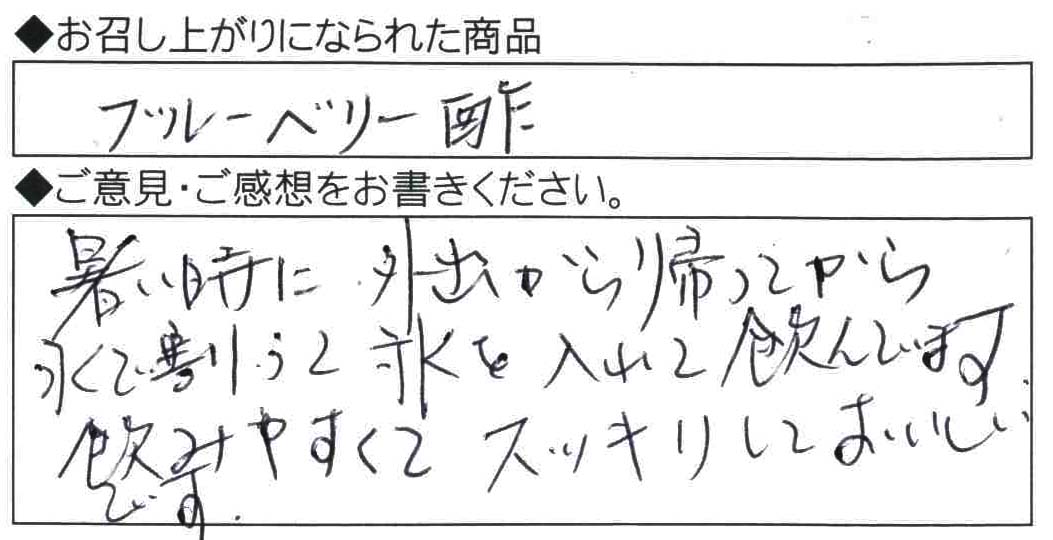 ◆お召し上がりになられた商品
ブルーベリー酢
◆ご意見・ご感想をお書きください。
暑い時に外出から帰ってから
水で割って氷を入れて飲んでます。
飲みやすくてスッキリしておいしい
です。